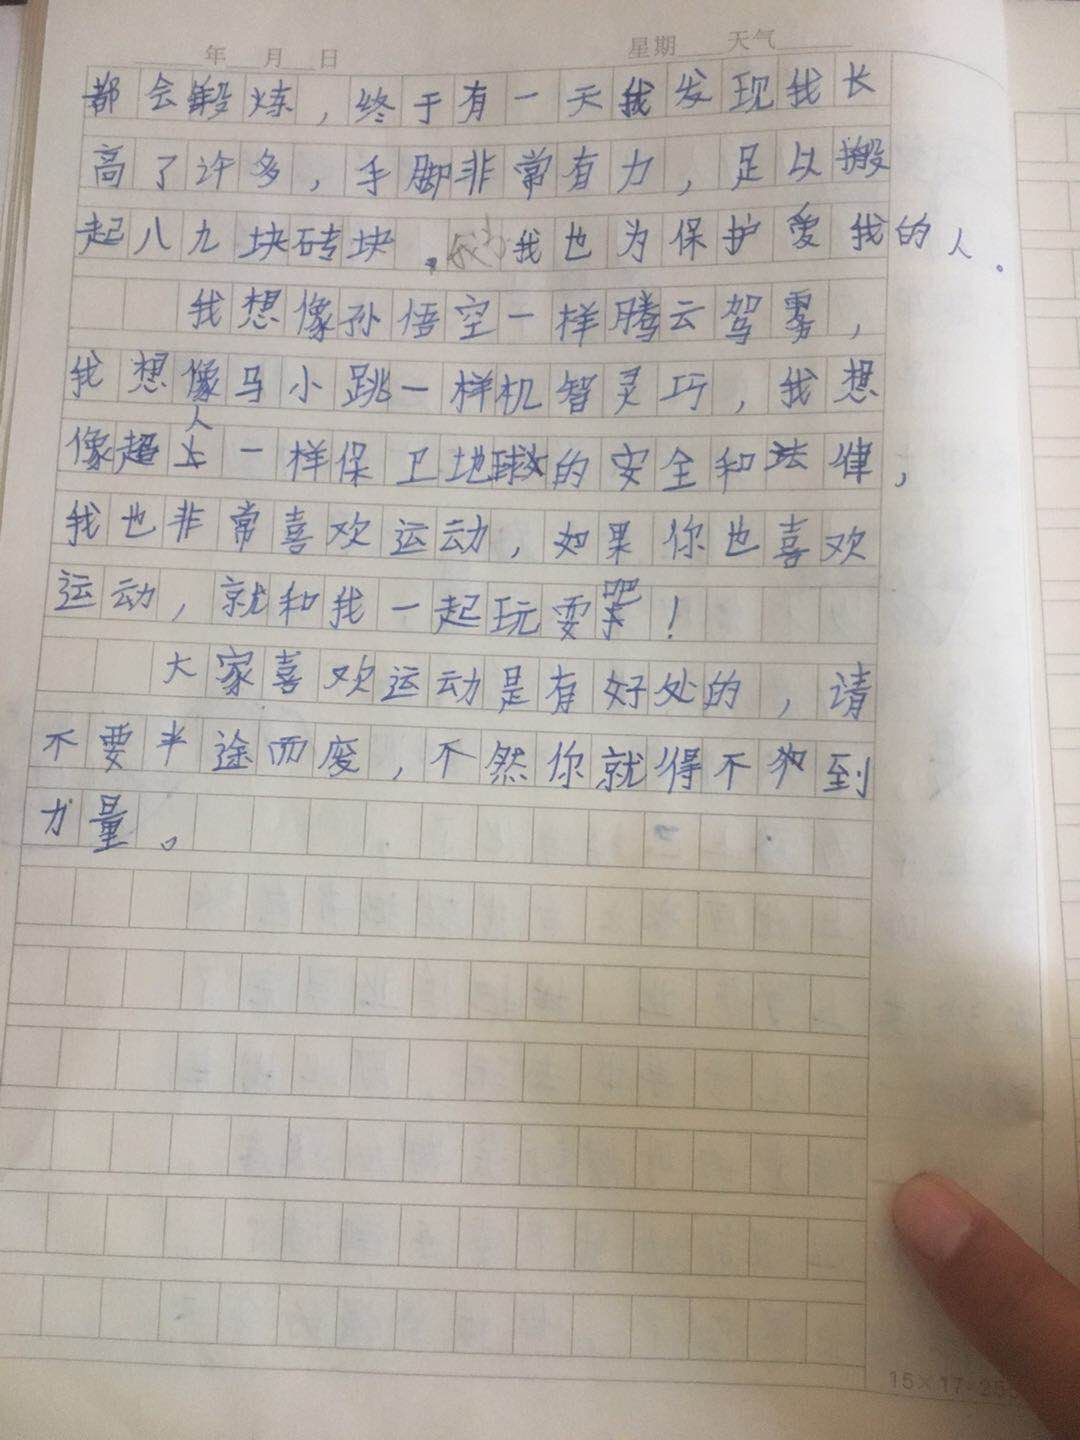 年 月 日 星期 天气
都会锻炼，终于有一天我发现我长
高了许多，手脚非常有力，足以搬
起八九块砖块。我也为保护爱我的人。
我想像孙悟空一样腾云驾雾，
我想像马小跳一样机智灵巧，我想
像超人一样保卫地球的安全和法律，
我也非常喜欢运动，如果你也喜欢
运动，就和我一起玩耍吧！
大家喜欢运动是有好处的，请
不要半途而废，不然你就得不到
力量。
15×17=255